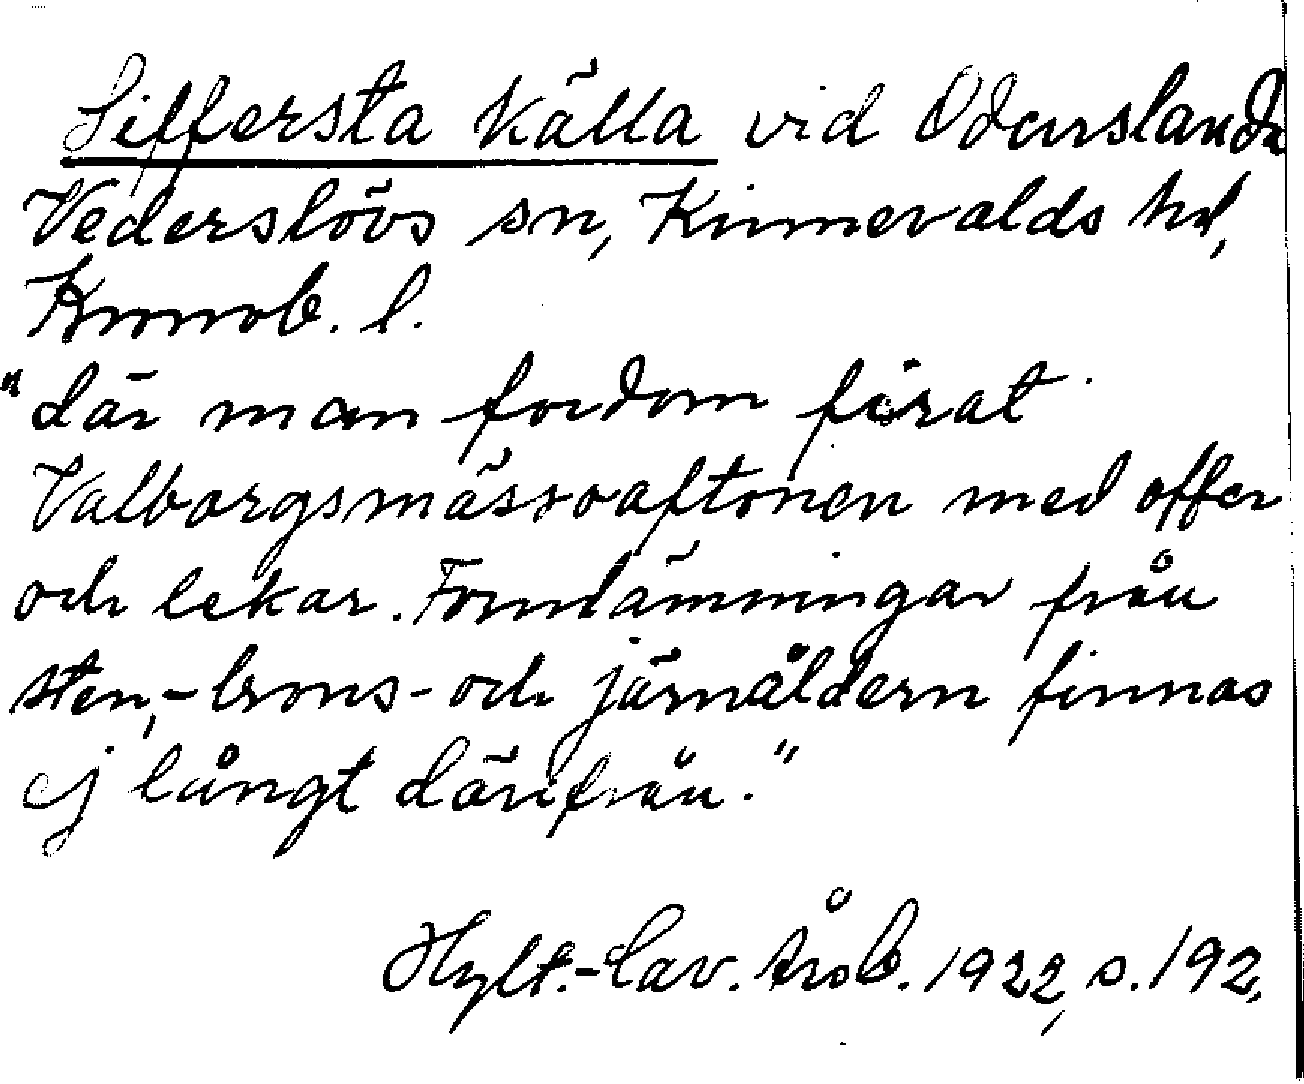 Siffersta källa vid Odenslanda
Vederslövs sn, Kinnevalds hd,
Kronob. l.
"där man fordom firat
Valborgsmässoaftonen med offer
och lekar. Fornlämningar från
sten,- brons- och järnåldern finnas
ej långt därifrån."
Hylt.-Cav. årsb. 1922, s. 192.